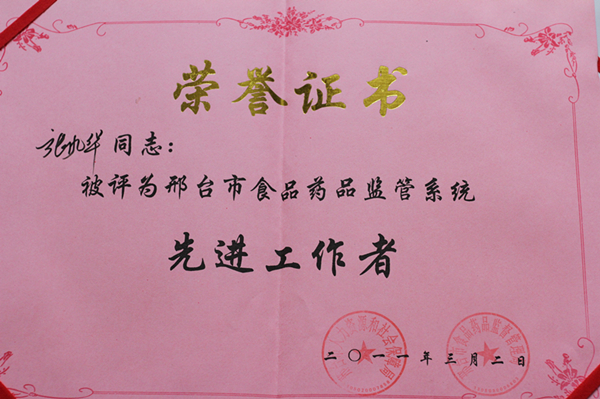 荣誉证书
张九华同志：
被评为邢台市食品药品监管系统
先进工作者
二〇一一年三月二日